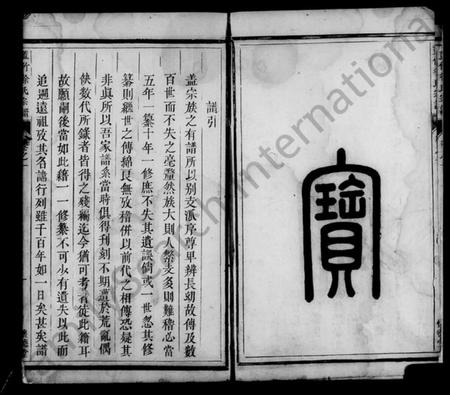 寶
譜引
蓋宗族之有譜所以別支派序尊卑辨長幼故傳及數
百世而不失之毫釐然族大則人繁支多則難稽必當
五年一纂十年一修庶不失其遺誤倘或一世忽其修
纂則繼世之傳綿艮無攷稽併以前代之相傳恐疑其
非與所以吾家譜系當時俱得刊刻不期遭於荒亂偶
佚數代所錄者皆得之殘編迄今猶可考者徒此籍耳
故願嗣後當如此籍一一修纂不可少有遺失以此而
追遡遠祖攷其名諱行列雖千百年如一日矣甚矣譜